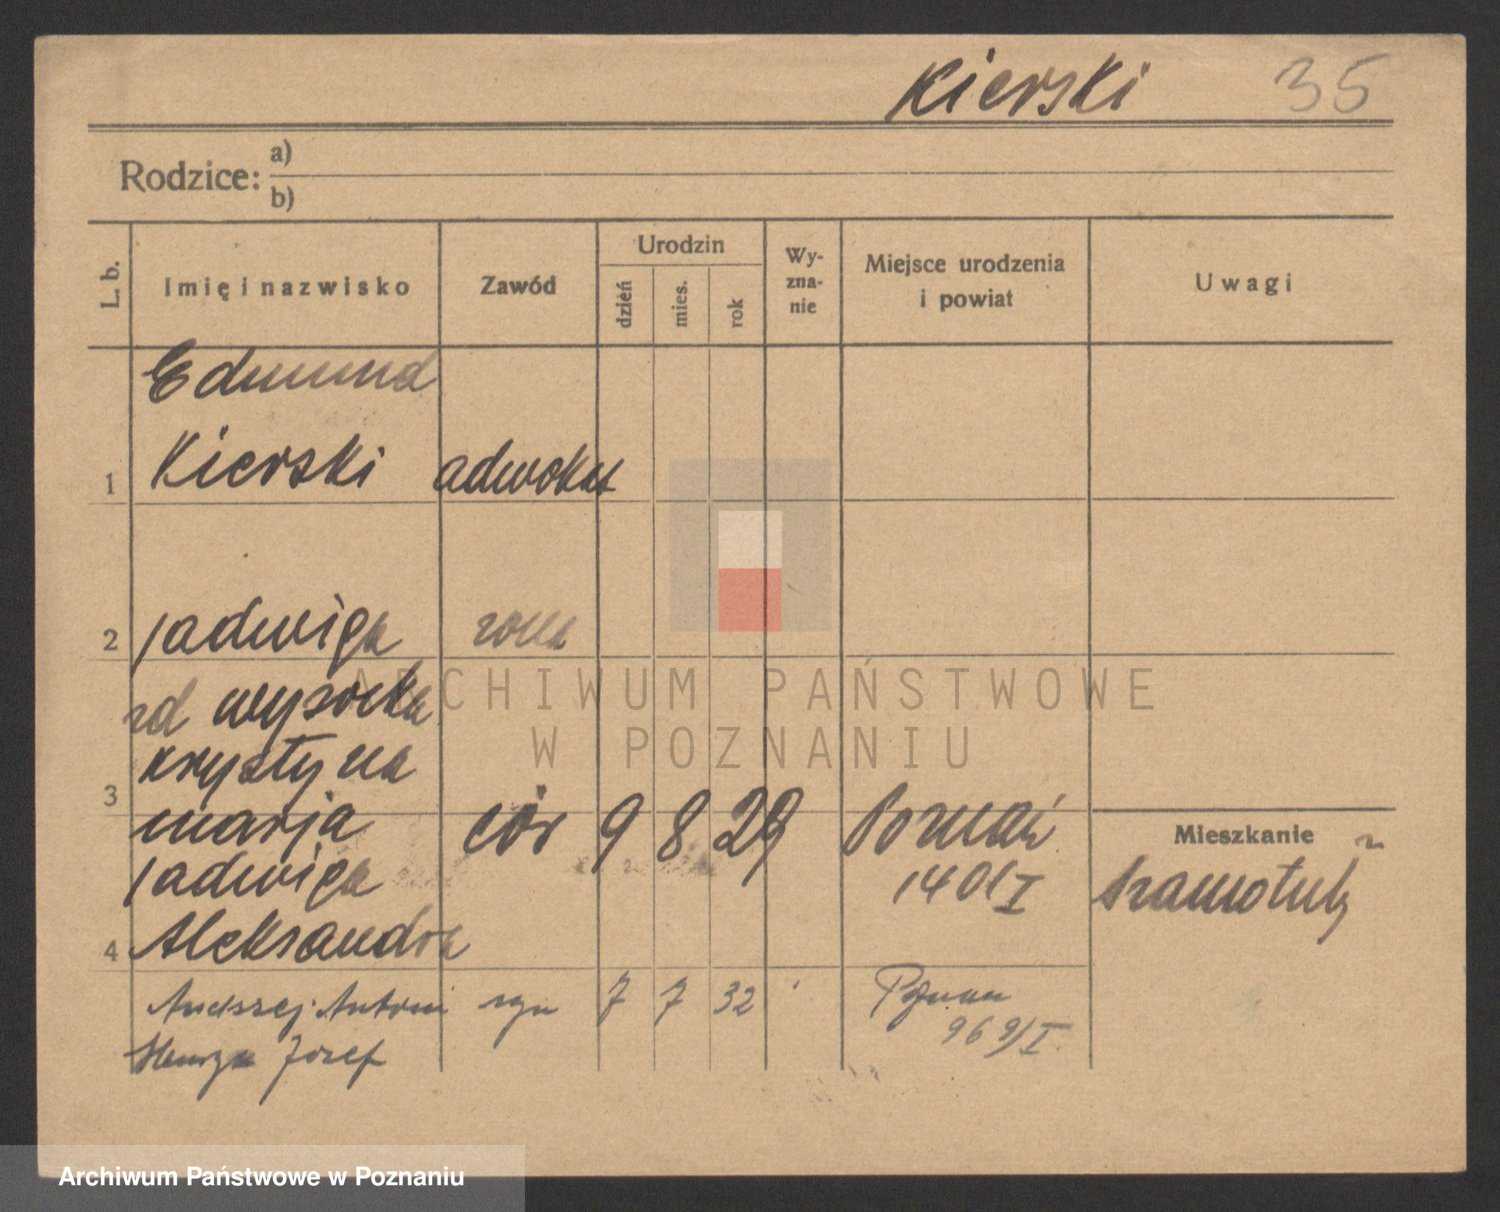 Kierski 35
Rodzice: a)
b)
L. b. Imię i nazwisko Zawód Urodzin dzień mies. rok Wy-zna-nie Miejsce urodzenia i powiat Uwagi
Edmund
1 Kierski adwokat
2 Jadwiga żona
zd Wysocka
Krystyna
3
Marja cór 9 8 29 Poznań
Mieszkanie
Jadwiga 1401/I Szamotuły
4 Aleksandra
Andrzej Antoni syn 7 7 32 Poznań
Henryk Józef 969/I
ARCHIWUM PAŃSTWOWE
W POZNANIU
Archiwum Państwowe w Poznaniu